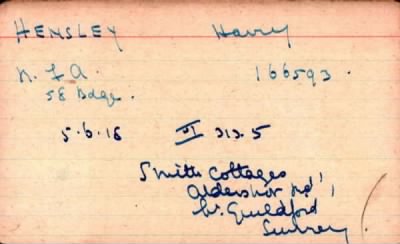 HENSLEY Harry
R. F. A. 166593.
58 Bdge.
5.6.18 II 313.5
Smiths Cottages
Aldershot Rd,
Nr. Guildford
Surrey